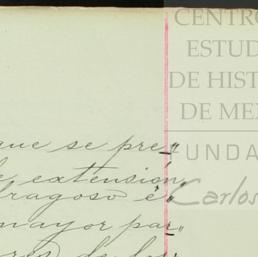 CENTRO
ESTUD
DE HIST
DE ME
FUNDA
Carlos
que se pre„
extensión„
fragoso é„
mayor par„